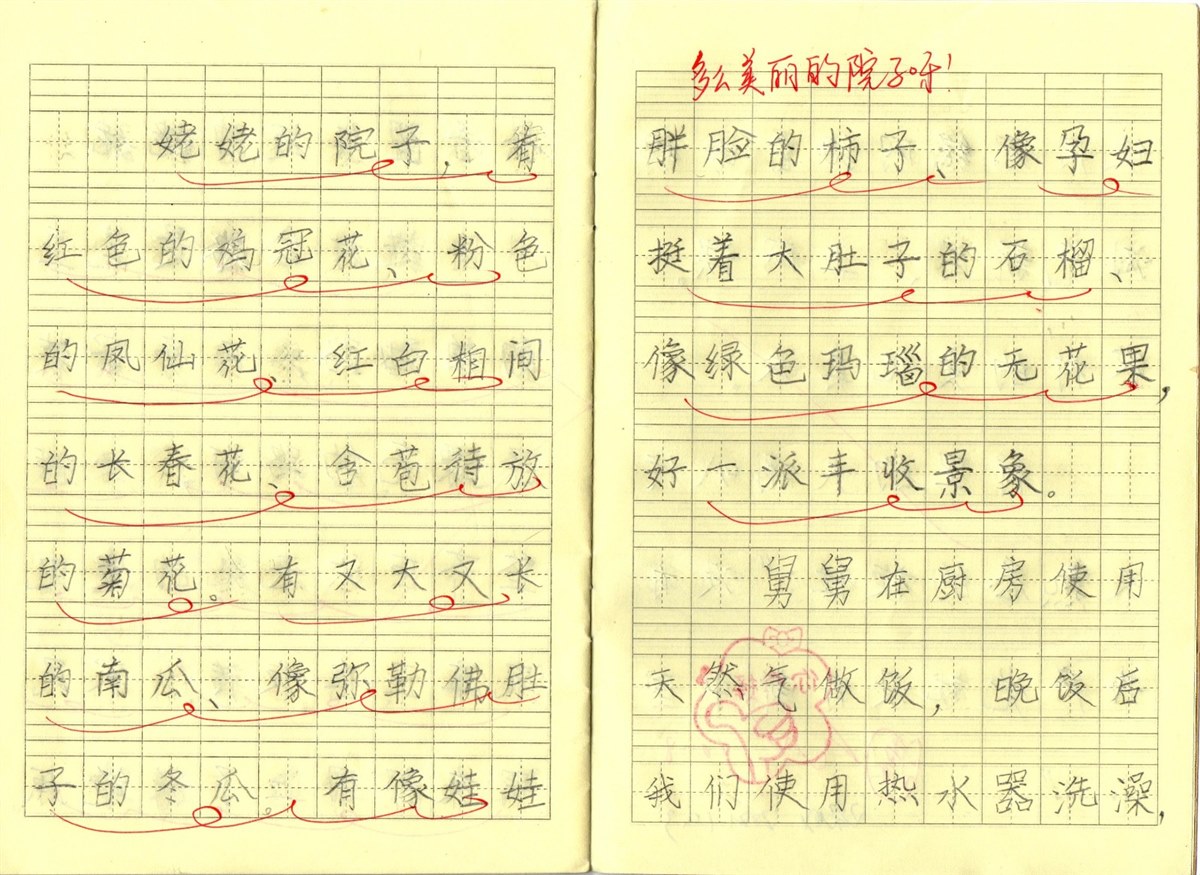 姥姥的院子，有
红色的鸡冠花、粉色
的凤仙花、红白相间
的长春花、含苞待放
的菊花。有又大又长
的南瓜、像弥勒佛肚
子的冬瓜。有像娃娃
多么美丽的院子呀！
胖脸的柿子、像孕妇
挺着大肚子的石榴、
像绿色玛瑙的无花果，
好一派丰收景象。
舅舅在厨房使用
天然气做饭，晚饭后
我们使用热水器洗澡，